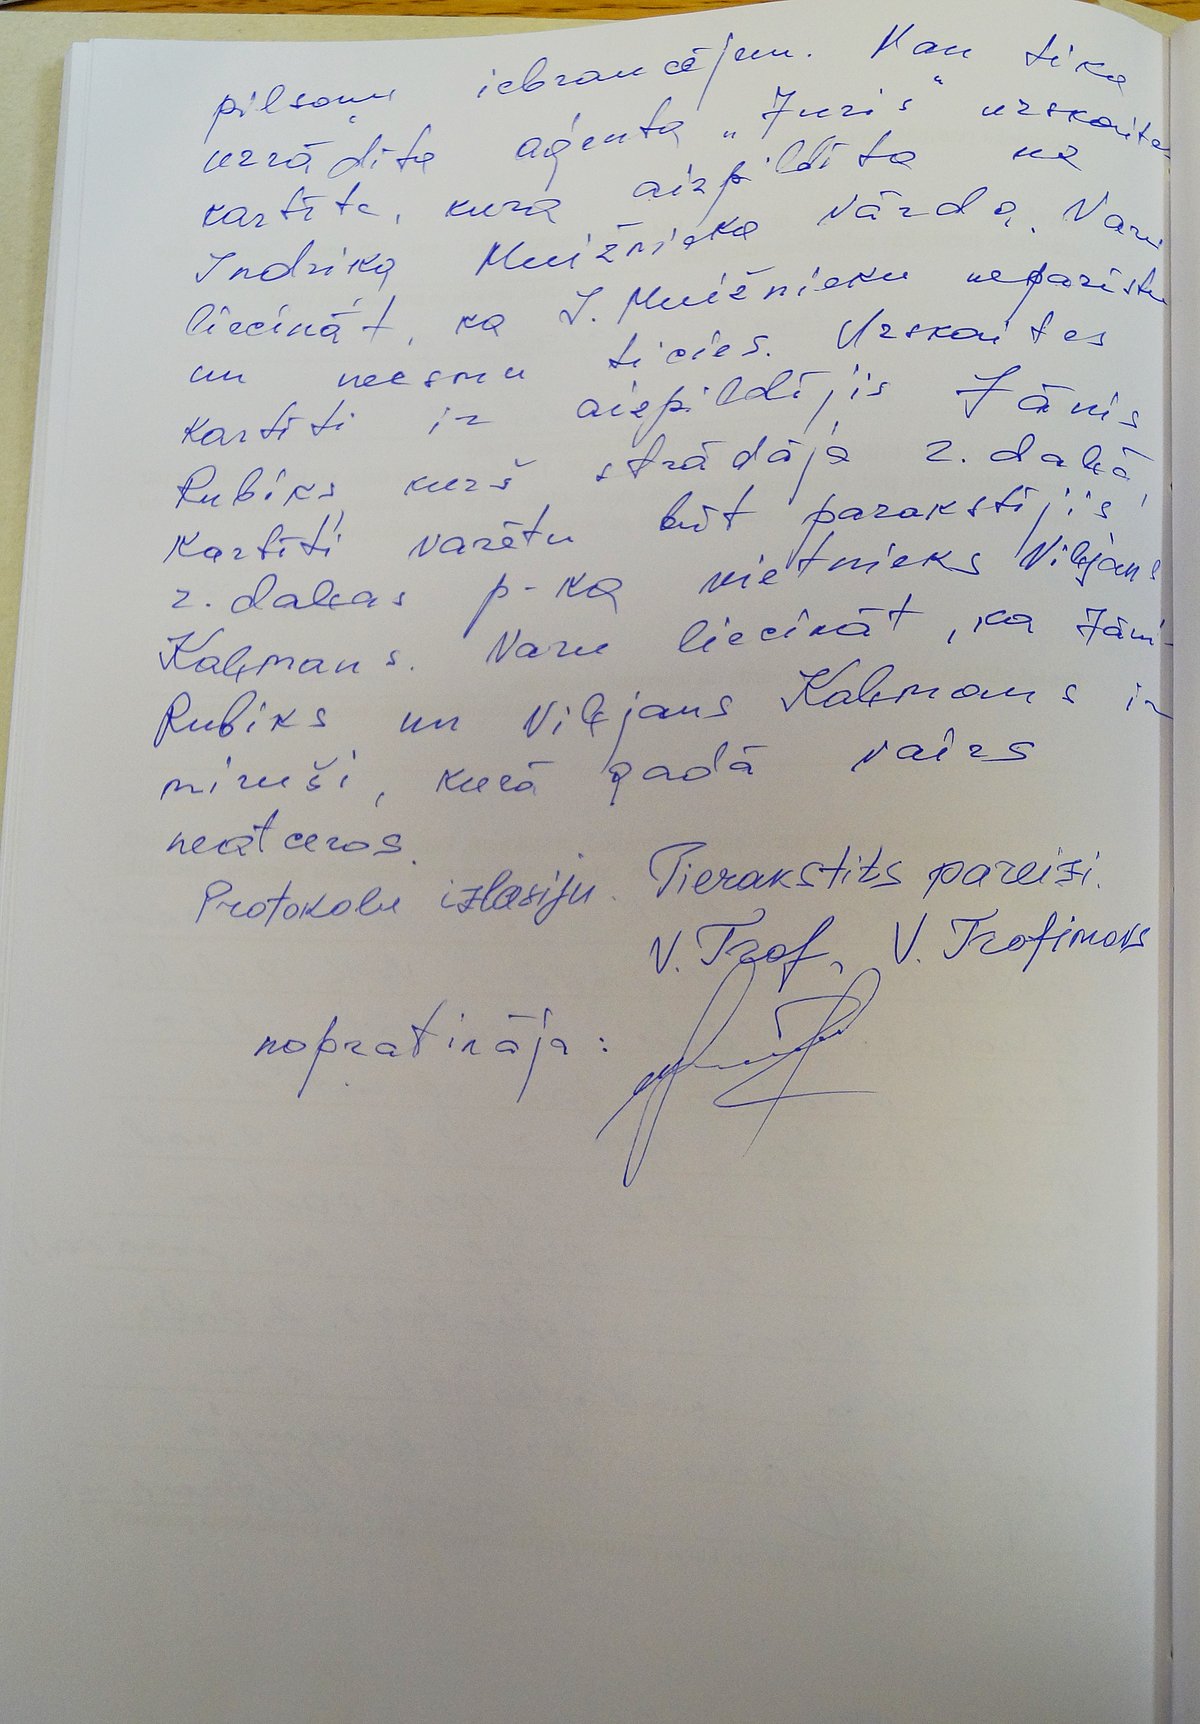 pilsoņu iebraucējiem. Man tika
uzrādīta aģenta „Juris" uzskaites
kartīte, kura aizpildīta uz
Indriķa Muižnieka vārda. Varu
liecināt, ka I. Muižnieku nepazīstu
un neesmu ticies. Uzskaites
kartīti ir aizpildījis Jānis
Rubiks, kurš strādāja 2. daļā,
kartīti varētu būt parakstījis
2. daļas p-ka vietnieks Viljans
Kalmans. Varu liecināt, ka Jānis
Rubiks un Viljans Kalmans ir
miruši, kurā gadā vairs
neatceros.
Protokolu izlasīju. Pierakstīts pareizi.
V. Trof. V. Trofimovs
nopratināja: